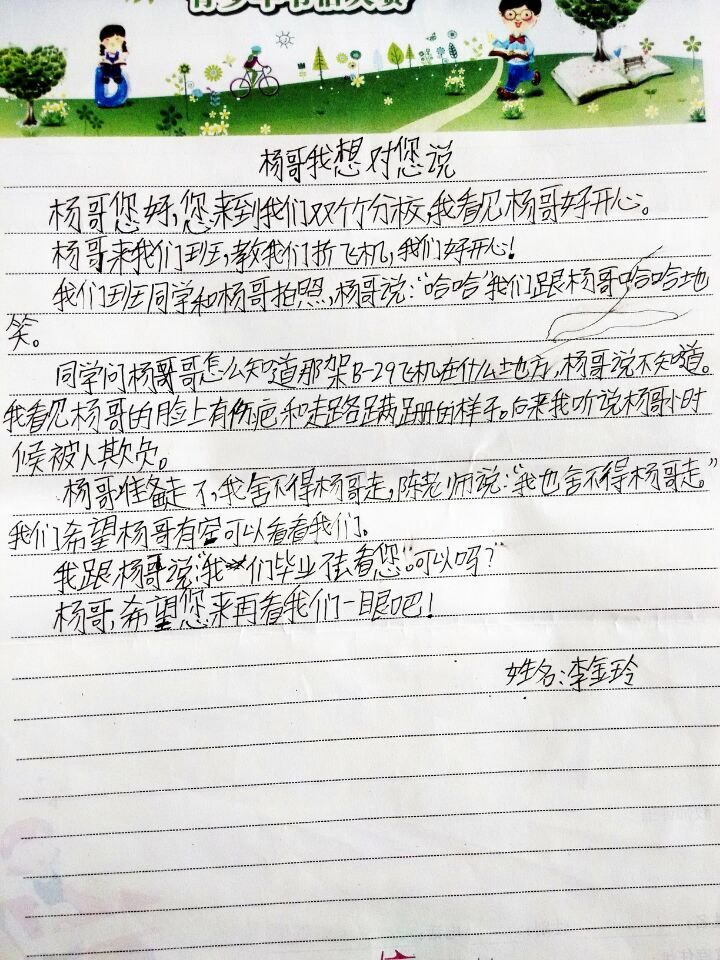 青少年书信大赛
杨哥我想对您说
杨哥您好,您来到我们双竹分校,我看见杨哥好开心。
杨哥来我们班,教我们折飞机,我们好开心!
我们班同学和杨哥拍照,杨哥说:“哈哈”我们跟杨哥哈哈地
笑。
同学问杨哥哥怎么知道那架B-29飞机在什么地方,杨哥说不知道。
我看见杨哥的脸上有伤疤和走路蹒跚的样子。后来我听说杨哥小时
候被人欺负。
杨哥准备走了,我舍不得杨哥走,陈老师说:“我也舍不得杨哥走。”
我们希望杨哥有空可以看看我们。
我跟杨哥说“我们毕业了去看您。可以吗?”
杨哥,希望您来再看我们一眼吧!
姓名:李金玲